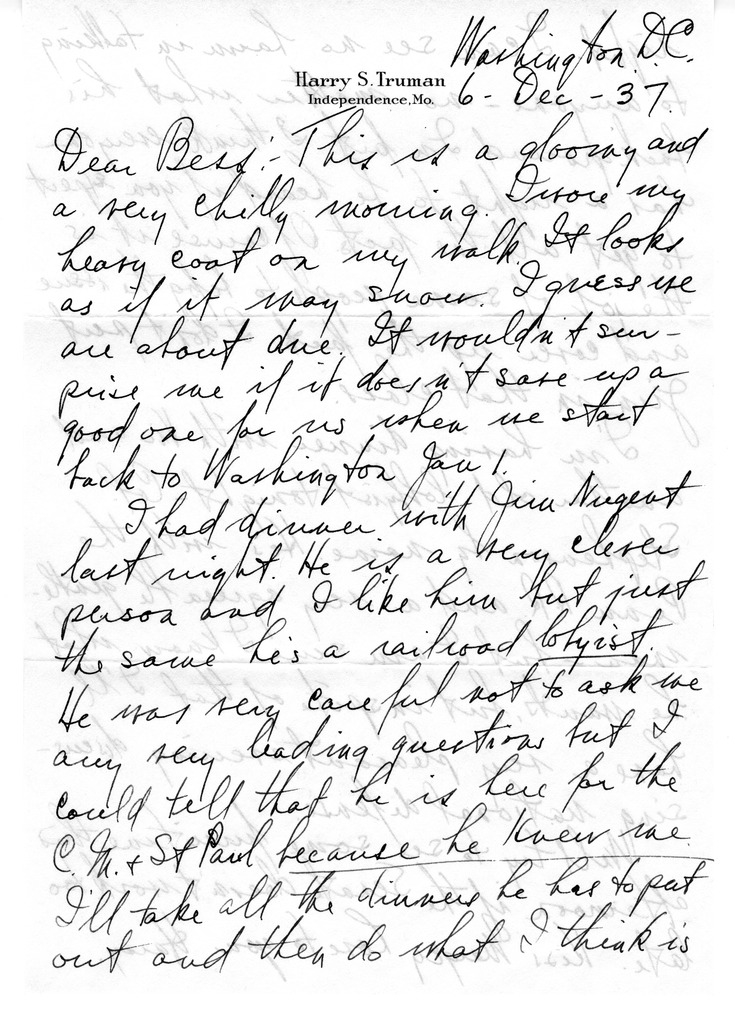 Washington, D.C.
Harry S. Truman
Independence, Mo.
6 - Dec - 37.
Dear Bess:- This is a gloomy and
a very chilly morning. I wore my
heavy coat on my walk. It looks
as if it may snow. I guess we
are about due. It wouldn't sur-
prise me if it doesn't save up a
good one for us when we start
back to Washington Jan 1.
I had dinner with Jim Nugent
last night. He is a very clever
person and I like him but just
the same he's a railroad lobyist.
He was very careful not to ask me
any very leading questions but I
could tell that he is here for the
C. M. & St Paul because he knew me.
I'll take all the dinners he has to put
out and then do what I think is